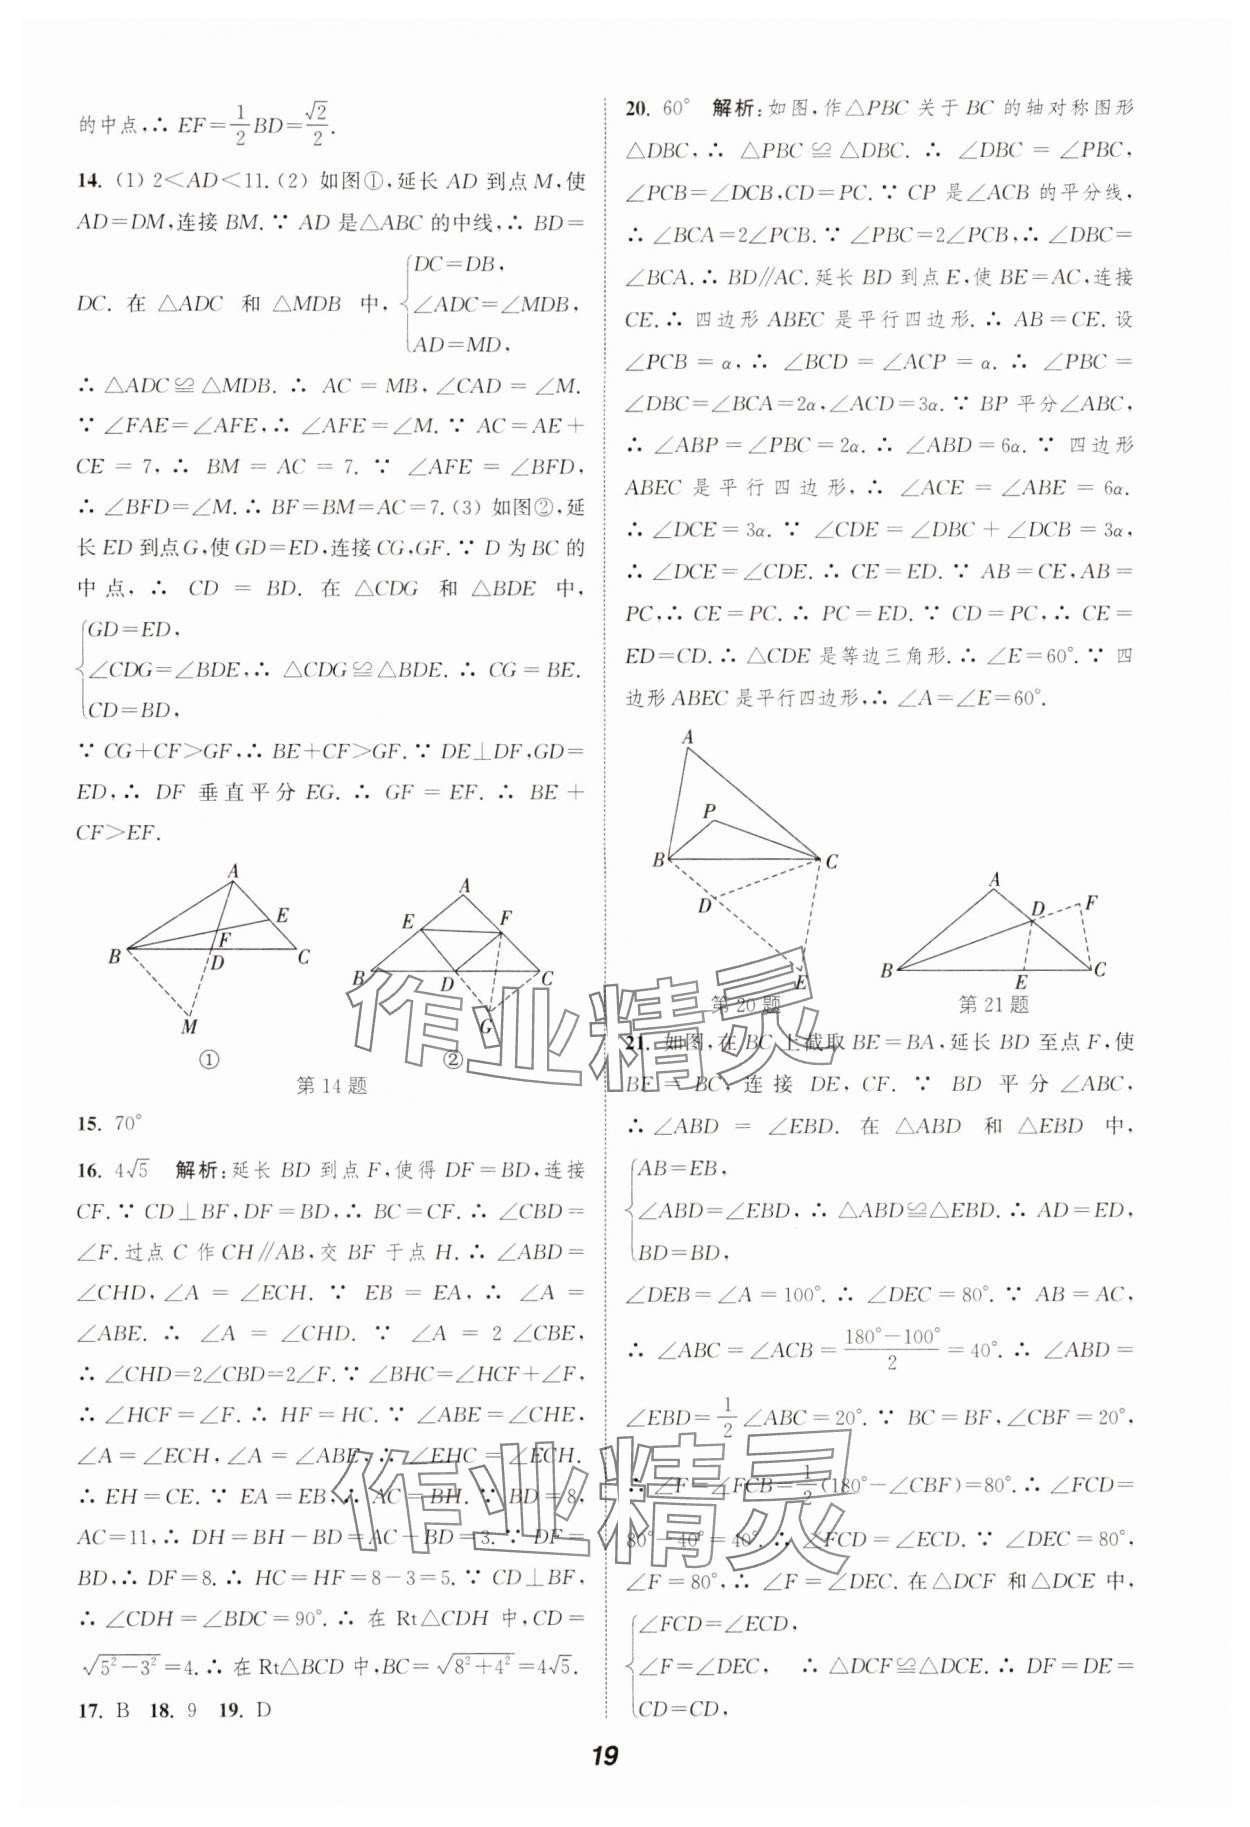 的中点,∴ EF=1/2 BD=√2/2.
14. (1) 2<AD<11.(2) 如图①,延长 AD 到点 M,使
AD=DM,连接 BM.∵ AD 是△ABC 的中线,∴ BD=
DC. 在 △ADC 和 △MDB 中, {DC=DB,
∠ADC=∠MDB,
AD=MD,
∴ △ADC≌△MDB. ∴ AC=MB,∠CAD=∠M.
∵ ∠FAE=∠AFE,∴ ∠AFE=∠M.∵ AC=AE+
CE=7,∴ BM=AC=7. ∵ ∠AFE=∠BFD,
∴ ∠BFD=∠M.∴ BF=BM=AC=7.(3) 如图②,延
长 ED 到点 G,使 GD=ED,连接 CG,GF.∵ D 为 BC 的
中点,∴ CD=BD. 在 △CDG 和 △BDE 中,
{GD=ED,
∠CDG=∠BDE,∴ △CDG≌△BDE.∴ CG=BE.
CD=BD,
∵ CG+CF>GF,∴ BE+CF>GF.∵ DE⊥DF,GD=
ED,∴ DF 垂直平分 EG. ∴ GF=EF. ∴ BE+
CF>EF.
A
E
F
B
D
C
M
①
A
E
F
B
D
C
G
②
第 14 题
15. 70°
16. 4√5 解析:延长 BD 到点 F,使得 DF=BD,连接
CF.∵ CD⊥BF,DF=BD,∴ BC=CF.∴ ∠CBD=
∠F.过点 C 作 CH∥AB,交 BF 于点 H.∴ ∠ABD=
∠CHD,∠A=∠ECH. ∵ EB=EA,∴ ∠A=
∠ABE. ∴ ∠A=∠CHD. ∵ ∠A=2∠CBE,
∴ ∠CHD=2∠CBD=2∠F.∵ ∠BHC=∠HCF+∠F,
∴ ∠HCF=∠F.∴ HF=HC.∵ ∠ABE=∠CHE,
∠A=∠ECH,∠A=∠ABE,∴ ∠EHC=∠ECH.
∴ EH=CE.∵ EA=EB,∴ AC=BH.∵ BD=8,
AC=11,∴ DH=BH-BD=AC-BD=3.∵ DF=
BD,∴ DF=8.∴ HC=HF=8-3=5.∵ CD⊥BF,
∴ ∠CDH=∠BDC=90°.∴ 在 Rt△CDH 中,CD=
√(5²-3²)=4.∴ 在 Rt△BCD 中,BC=√(8²+4²)=4√5.
17. B 18. 9 19. D
20. 60° 解析:如图,作△PBC 关于 BC 的轴对称图形
△DBC,∴ △PBC≌△DBC. ∴ ∠DBC=∠PBC,
∠PCB=∠DCB,CD=PC.∵ CP 是∠ACB 的平分线,
∴ ∠BCA=2∠PCB.∵ ∠PBC=2∠PCB,∴ ∠DBC=
∠BCA.∴ BD∥AC.延长 BD 到点 E,使 BE=AC,连接
CE.∴ 四边形 ABEC 是平行四边形.∴ AB=CE.设
∠PCB=α,∴ ∠BCD=∠ACP=α. ∴ ∠PBC=
∠DBC=∠BCA=2α,∠ACD=3α.∵ BP 平分∠ABC,
∴ ∠ABP=∠PBC=2α.∴ ∠ABD=6α.∵ 四边形
ABEC 是平行四边形,∴ ∠ACE=∠ABE=6α.
∴ ∠DCE=3α.∵ ∠CDE=∠DBC+∠DCB=3α,
∴ ∠DCE=∠CDE.∴ CE=ED.∵ AB=CE,AB=
PC,∴ CE=PC.∴ PC=ED.∵ CD=PC,∴ CE=
ED=CD.∴ △CDE 是等边三角形.∴ ∠E=60°.∵ 四
边形 ABEC 是平行四边形,∴ ∠A=∠E=60°.
A
P
B
C
D
E
第 20 题
A
D
F
B
E
C
第 21 题
21. 如图,在 BC 上截取 BE=BA,延长 BD 至点 F,使
BF=BC,连接 DE,CF. ∵ BD 平分∠ABC,
∴ ∠ABD=∠EBD. 在 △ABD 和 △EBD 中,
{AB=EB,
∠ABD=∠EBD,∴ △ABD≌△EBD.∴ AD=ED,
BD=BD,
∠DEB=∠A=100°.∴ ∠DEC=80°.∵ AB=AC,
∴ ∠ABC=∠ACB=(180°-100°)/2=40°.∴ ∠ABD=
∠EBD=1/2∠ABC=20°.∵ BC=BF,∠CBF=20°,
∴ ∠F=∠FCB=1/2(180°-∠CBF)=80°.∴ ∠FCD=
80°-40°=40°.∴ ∠FCD=∠ECD.∵ ∠DEC=80°,
∠F=80°,∴ ∠F=∠DEC.在△DCF 和△DCE 中,
{∠FCD=∠ECD,
∠F=∠DEC, ∴ △DCF≌△DCE.∴ DF=DE=
CD=CD,
作业精灵
作业精灵
19